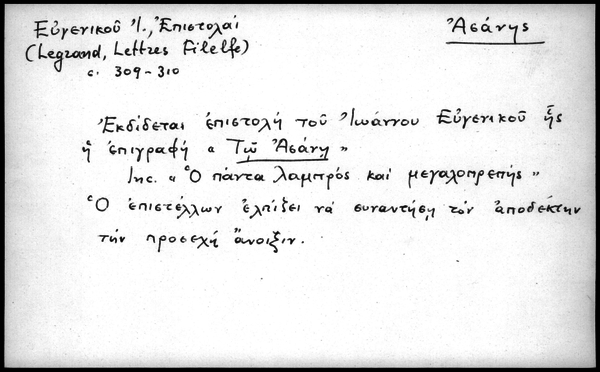 Εὐγενικοῦ Ἰ., Ἐπιστολαί
Ἀσάνης
(Legrand, Lettres Filelfe)
σ. 309-310
Ἐκδίδεται ἐπιστολή τοῦ Ἰωάννου Εὐγενικοῦ ἧς
ἡ ἐπιγραφή « Τῷ Ἀσάνῃ »
Inc. « Ὁ πάντα λαμπρός καί μεγαλοπρεπής »
Ὁ ἐπιστέλλων ἐλπίζει νά συναντήσῃ τόν ἀποδέκτην
τήν προσεχῆ ἄνοιξιν.